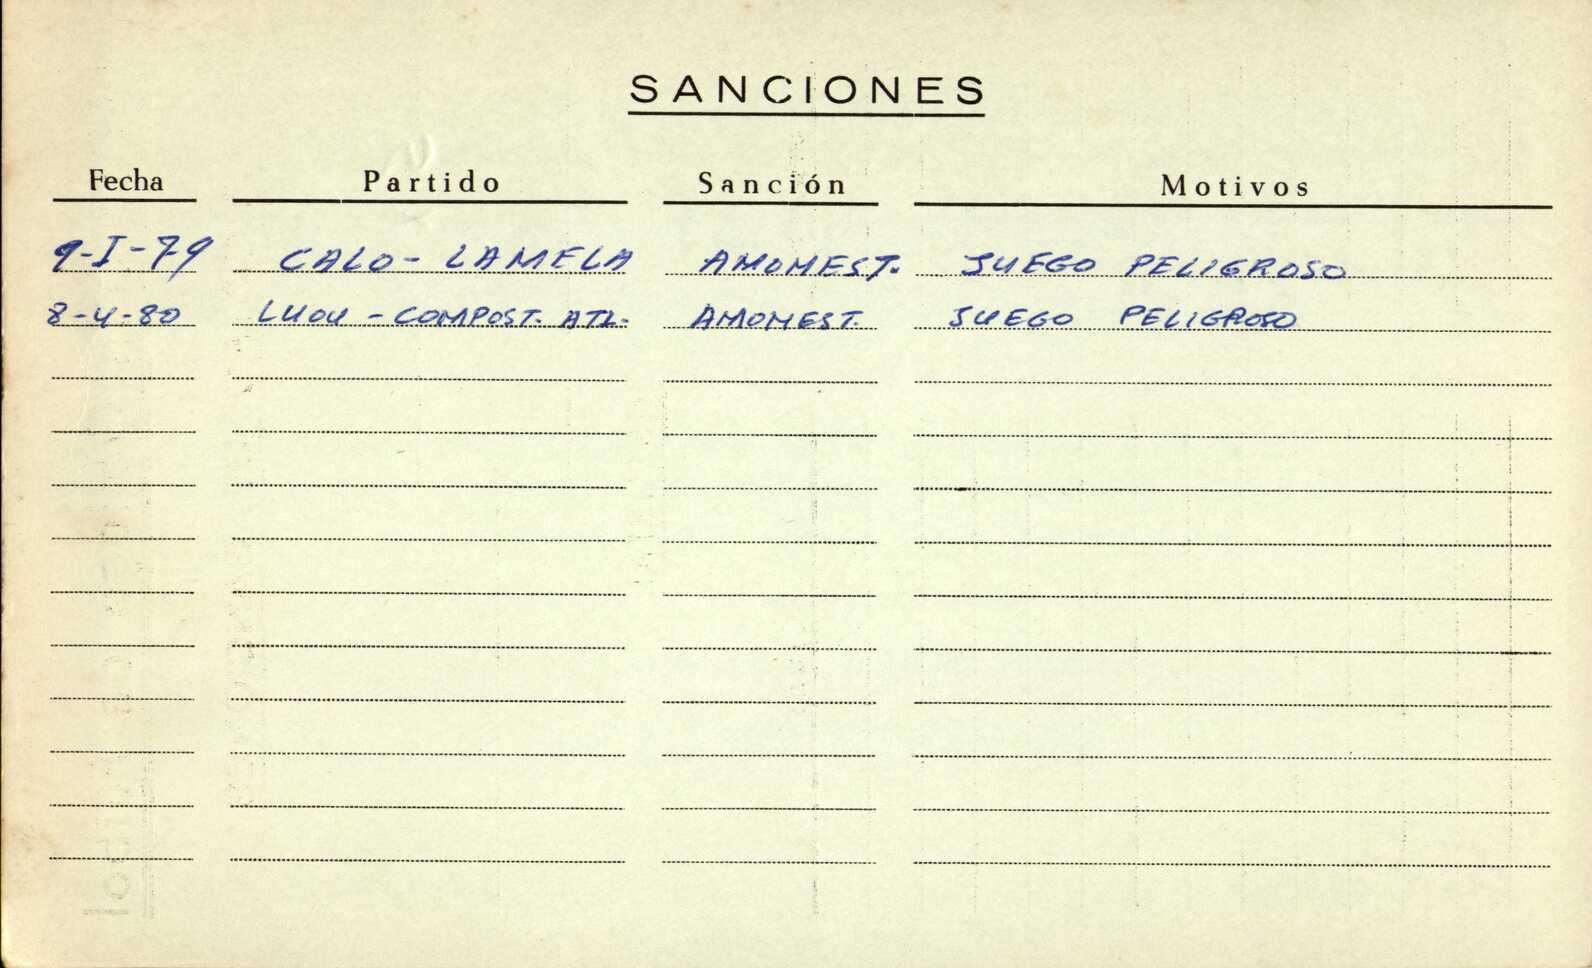 SANCIONES
Fecha Partido Sanción Motivos
9-I-79 CALO - LAMELA AMONEST. JUEGO PELIGROSO
8-4-80 LUOU - COMPOST. ATL. AMONEST. JUEGO PELIGROSO